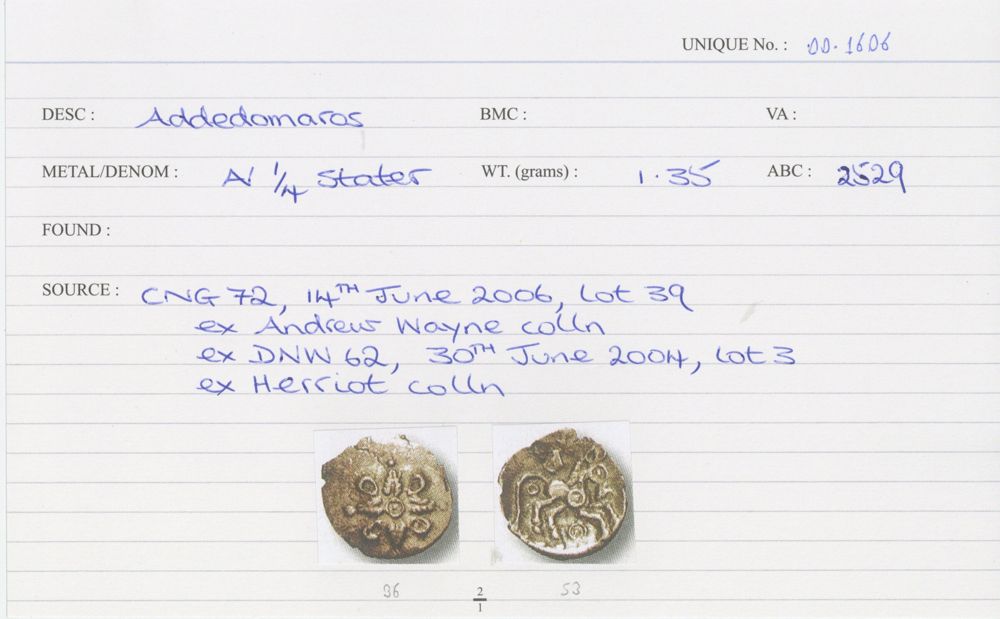 UNIQUE No. : 00.1606
DESC : Addedomaros BMC : VA :
METAL/DENOM : A/ 1/4 Stater WT. (grams) : 1.35 ABC : 2529
FOUND :
SOURCE : CNG 72, 14TH June 2006, lot 39
ex Andrew Wayne colln
ex DNW 62, 30TH June 2004, lot 3
ex Herriot colln
36 2/1 53